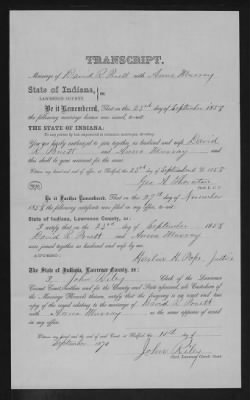 TRANSCRIPT.
Marriage of David R. Buett with Anna Murray
State of Indiana,
LAWRENCE COUNTY.
Be it Remembered, That on this 23rd day of September 1858
the following marriage license was issued, to-wit:
THE STATE OF INDIANA:
To any person by law empowered to solemnize marriages, Greeting:
You are hereby authorized to join together as husband and wife David
R. Buett and Anna Murray and
this shall be your warrant for the same.
Witness my hand and the seal of office, at Bedford, this 23rd day of September 1858
Geo. A. Thornton
Be it Further Remembered, That on this 27th day of November
1858 the following certificate was filed in my office, to-wit:
State of Indiana, Lawrence County, ss:
I certify that on the 23rd day of September 1858
David R. Buett and Anna Murray
were joined together as husband and wife by me.
ATTESTED: Pope, Justice
The State of Indiana, Lawrence County, ss:
I, John Riley Clerk of the Lawrence
Circuit Court, within and for the County and State aforesaid, and Custodian of
the Marriage Records thereof, certify that the foregoing is any exact and true
copy of the record relating to the marriage of David R. Buett
with Anna Murray as the same appears of record
in my office.
Witness my hand and the seal of said Court at Bedford, this 11th day of
September 1890
John Riley
Clerk Lawrence Circuit Court.